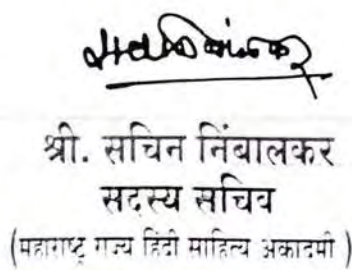 श्री. सचिन निंबालकर
सदस्य सचिव
(महाराष्ट्र राज्य हिंदी साहित्य अकादमी)